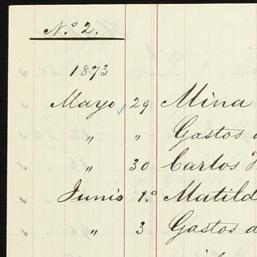 N.º 2.
1873
Mayo 29 Mina
" " Gastos
" 30 Carlos
Junio 1.º Matild
" 3 Gastos